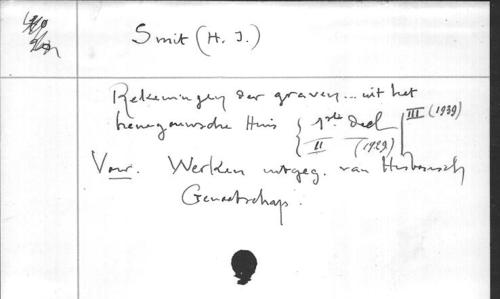 Smit (H. J.)
Rekeningen der graven... uit het
henegouwsche Huis { 1ste deel III (1939)
II (1929)
Voir. Werken uitgeg. van Historisch
Genootschap.